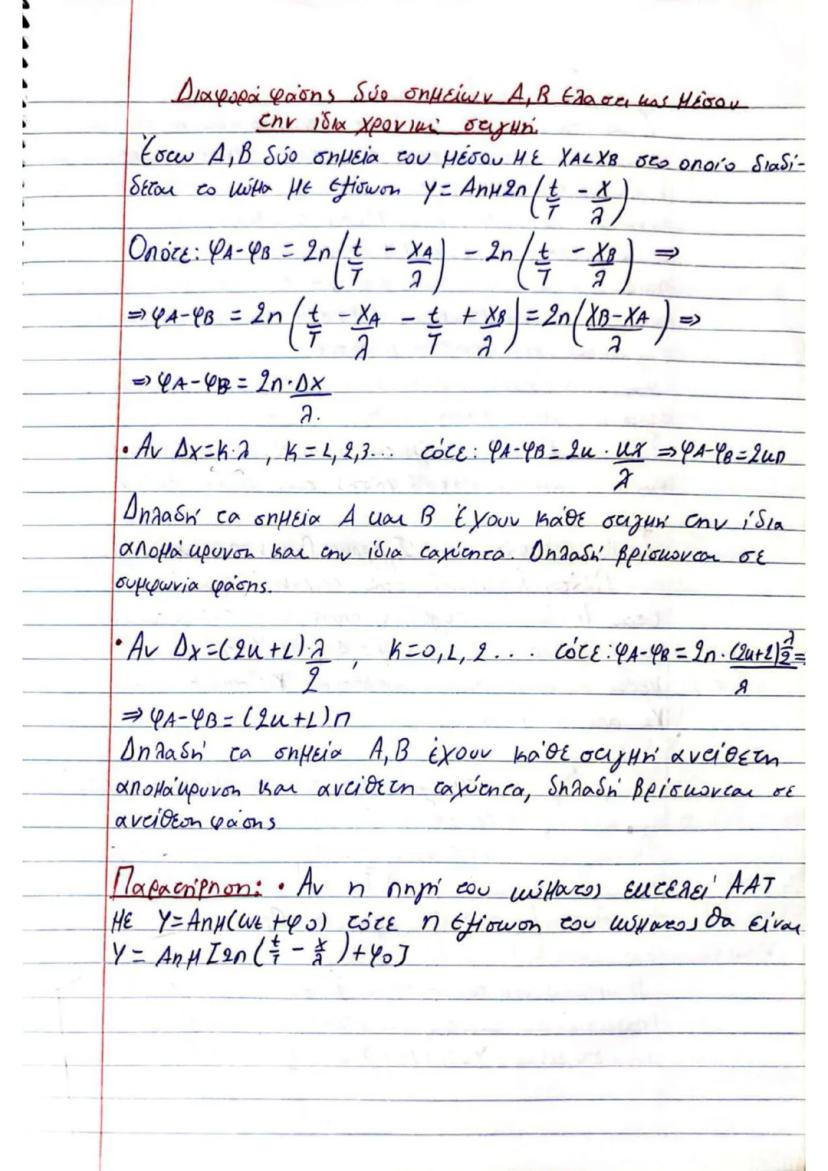 Διαφορά φάσης δύο σημείων Α,Β ελαστικού μέσου
την ίδια χρονική στιγμή.
Έστω Α,Β δύο σημεία του μέσου με XA<XB στο οποίο διαδί-
δεται το κύμα με εξίσωση Y = Aημ2π(t/T - X/λ)
Οπότε: φA-φB = 2π(t/T - XA/λ) - 2π(t/T - XB/λ) ⇒
⇒ φA-φB = 2π(t/T - XA/λ - t/T + XB/λ) = 2π(XB-XA/λ) ⇒
⇒ φA-φB = 2π·ΔX/λ.
• Αν Δx=κ·λ , κ=1,2,3... τότε: φA-φB = 2κ · κλ/λ ⇒ φA-φB = 2κπ
Δηλαδή τα σημεία Α και Β έχουν κάθε στιγμή την ίδια
απομάκρυνση και την ίδια ταχύτητα. Δηλαδή βρίσκονται σε
συμφωνία φάσης.
• Αν Δx=(2κ+1)·λ/2 , κ=0,1,2... τότε: φA-φB = 2π·(2κ+1)λ/2/λ =
⇒ φA-φB = (2κ+1)π
Δηλαδή τα σημεία Α,Β έχουν κάθε στιγμή αντίθετη
απομάκρυνση και αντίθετη ταχύτητα, δηλαδή βρίσκονται σε
αντίθεση φάσης
Παρατήρηση: • Αν η πηγή του κύματος εκτελεί ΑΑΤ
με Y=Aημ(ωt+φ0) τότε η εξίσωση του κύματος θα είναι
Y = Aημ[2π(t/T - x/λ)+φ0]